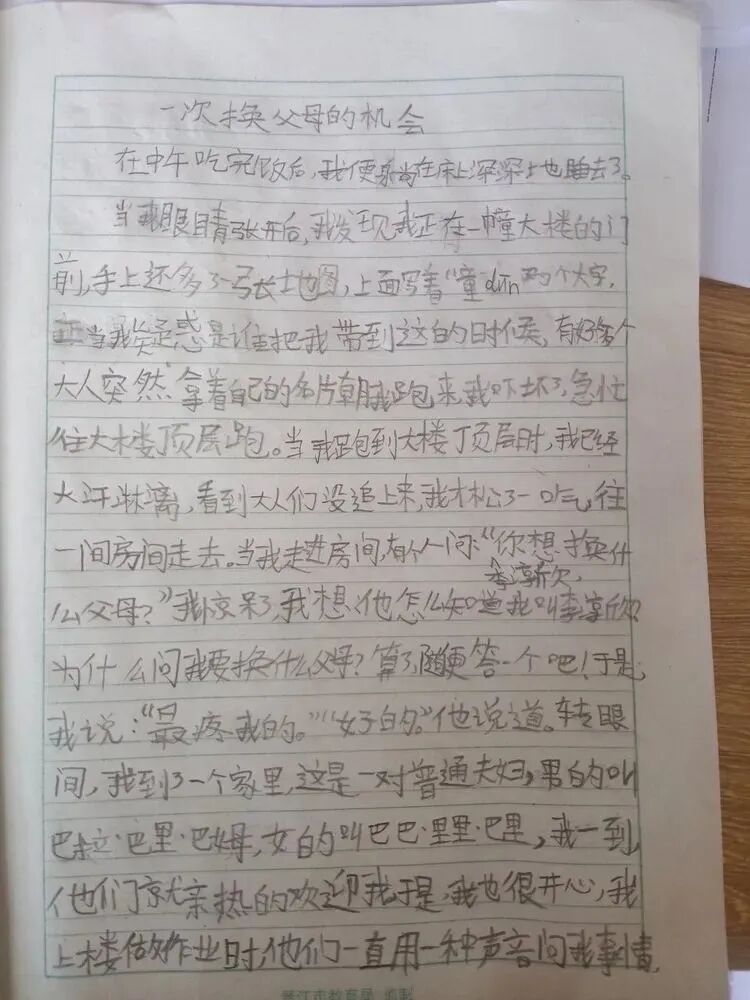 一次换父母的机会
在中午吃完饭后,我便躺在床上深深地睡去了。
当我眼睛张开后,我发现我正在一幢大楼的门
前,手上还多了一张地图,上面写着“童 个大字,
正当我疑惑是谁把我带到这的时候,有好多个
大人突然拿着自己的名片朝我跑来,我吓坏了,急忙
往大楼顶层跑。当我跑到大楼顶层时,我已经
大汗淋漓,看到大人们没追上来,我才松了一口气,往
一间房间走去。当我走进房间,有个人问:“你想换什
么父母?”我惊呆了,我想,他怎么知道我叫李
为什么问我要换什么父母?算了,随便答一个吧!于是,
我说:“最疼我的。”“好的。”他说道。转眼
间,我到了一个家里,这是一对普通夫妇,男的叫
巴拉·巴里·巴姆,女的叫巴巴·里里·巴里,我一到,
他们就亲热的欢迎我于是,我也很开心,我
上楼做作业时,他们一直用一种声音问我事情,
晋江市教育局 监制